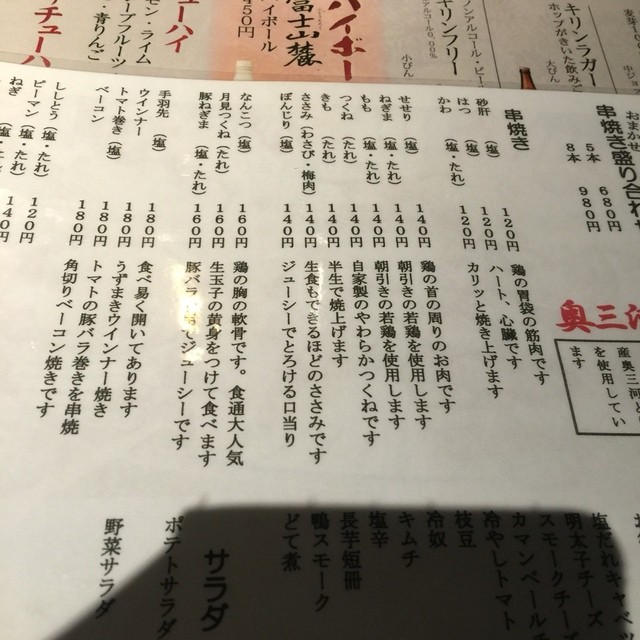 おまかせ
串焼き盛り合わせ
5本 680円
8本 980円
奥三河
産奥三河
を使用してい
ます
串焼き
砂肝 (塩) 120円 鶏の胃袋の筋肉です
はつ (塩) 120円 ハート、心臓です
かわ (塩・たれ) 120円 カリッと焼き上げます
せせり (塩) 140円 鶏の首の周りのお肉です
ねぎま (塩・たれ) 140円 朝引きの若鶏を使用します
もも (塩・たれ) 140円 朝引きの若鶏を使用します
つくね (たれ) 140円 自家製のやわらかつくねです
きも (たれ) 140円 半生で焼上げます
ささみ (わさび・梅肉) 140円 生食もできるほどのささみです
ぼんじり (塩) 140円 ジューシーでとろける口当り
なんこつ (塩) 160円 鶏の胸の軟骨です。食通大人気
月見つくね (たれ) 160円 生玉子の黄身をつけて食べます
豚ねぎま (塩・たれ) 160円 豚バラ ジューシーです
手羽先 (塩) 180円 食べ易く開いてあります
ウインナー 180円 うずまきウインナー焼き
トマト巻き (塩) 180円 トマトの豚バラ巻きを串焼
ベーコン 180円 角切りベーコン焼きです
ししとう (塩・たれ) 120円
ピーマン (塩・たれ) 140円
ねぎ (塩・たれ
塩だれキャベ
明太子チーズ
スモークチー
カマンベール
冷やしトマト
枝豆
冷奴
キムチ
塩辛
長芋短冊
鴨スモーク
どて煮
サラダ
ポテトサラダ
野菜サラダ
キリンラガー
ホップがきいた飲みご
大びん
ノンアルコール・ビー
キリンフリー
アルコール0.00%
小びん
ハイボー
富士山麓
ハイボール
450円
ューハイ
モン・ライム
ープフルーツ
・青りんご
チューハ